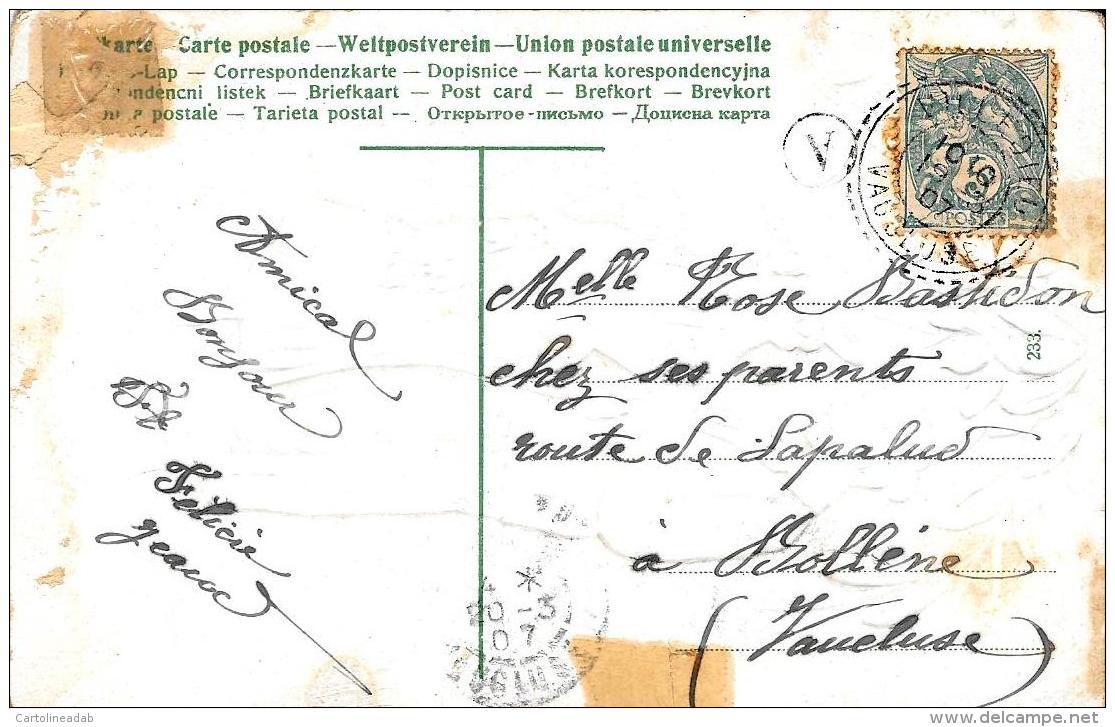 karte – Carte postale – Weltpostverein – Union postale universelle
-Lap – Correspondenzkarte – Dopisnice – Karta korespondencyjna
ndencni listek – Briefkaart – Post card – Brefkort – Brevkort
postale – Tarieta postal – Открытое письмо – Дописна карта
V
VAUCLUSE
POSTE
Amical
Bonjour
Félicie
Melle Rose Bastidon
chez ses parents
route de Lapalud
à Bollène
(Vaucluse)
233.
20-3
07
Cartolineadab
delcampe.net